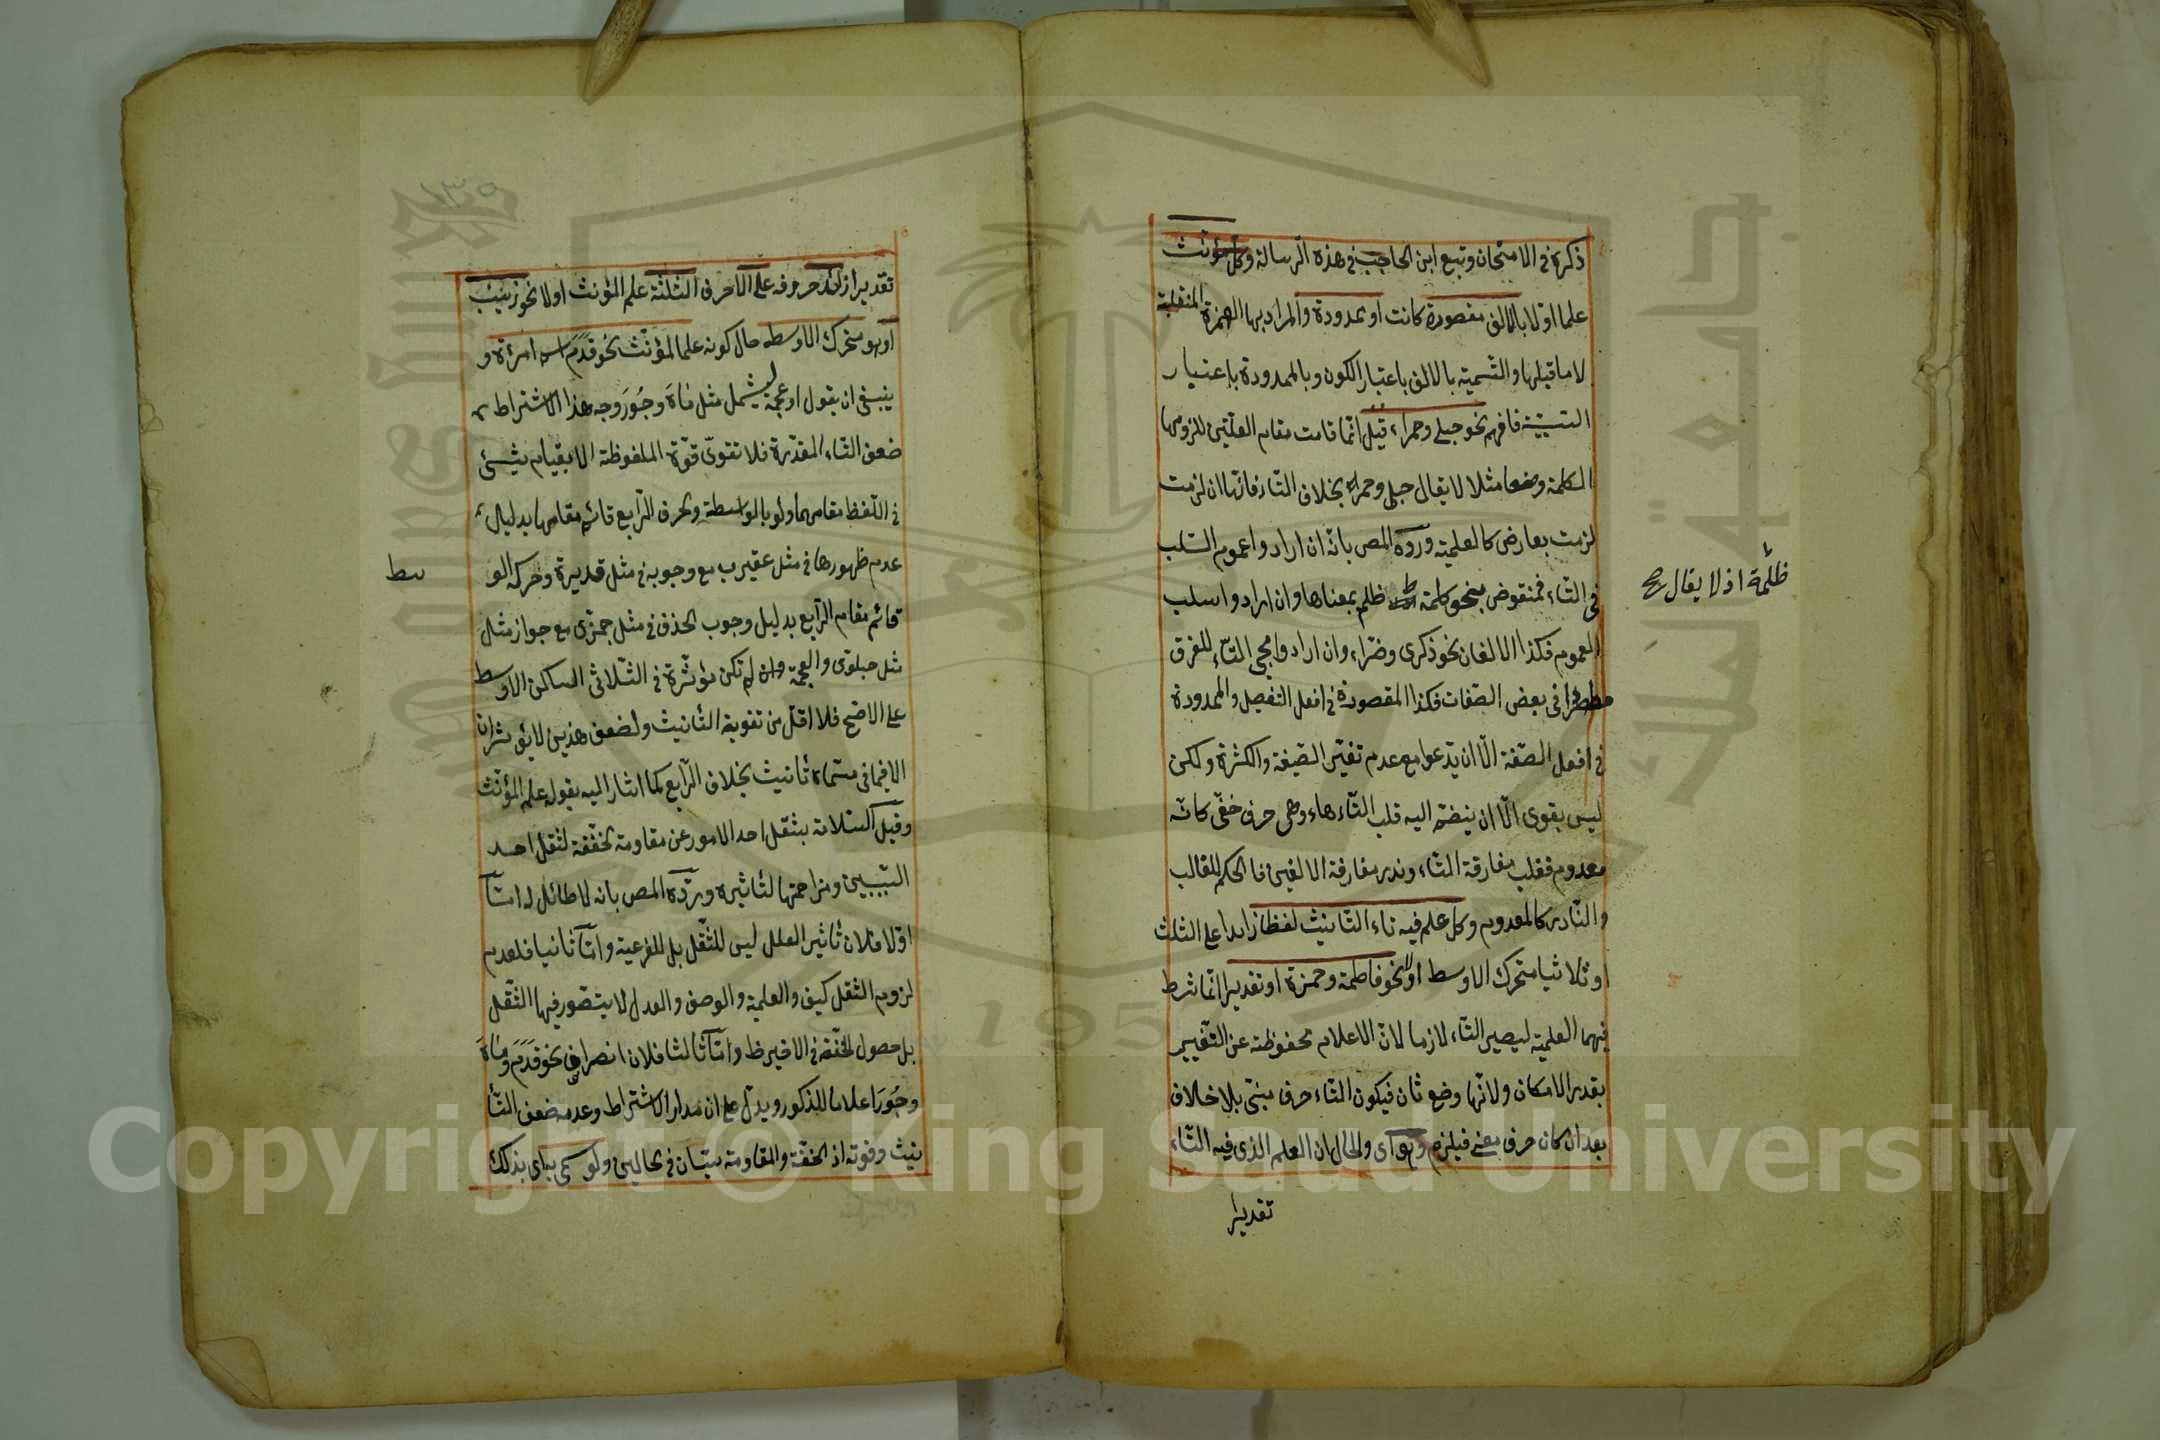 ذكره في الامتحان وتبع ابن الحاجب في هذه الرسالة وكل مؤنث
علما او لا بالالف مقصورة كانت او ممدودة والمراد بها الهمزة المنقلبة
لا ما قبلها والتسمية بالالف باعتبار الكون وبالممدودة باعتبار
فافهم نحو حبلى وحمراء قيل انما قامت مقام العلتين للزومها
الكلمة وضعا مثلا لا يقال حبل وحمراة بخلاف التاء فانها ان لزمت
لزمت بعارض كالعلمية ورده المص بانه ان ارادوا عموم السلب
في التاء فمنقوض بنحو كلمة ظلم بمعناها وان ارادوا سلب
ظلمة اذ لا يقال صح
العموم فكذا الالفان نحو ذكرى وضراء وان ارادوا مجيء التاء للفرق
مطردا في بعض الصفات فكذا المقصورة في افعل التفضيل والممدودة
في افعل الصفة الا ان يدعوا مع عدم تغير الصيغة والكثرة ولكن
ليس بقوي الا ان ينضم اليه قلب التاء هاء وهي حرف خفي كانه
معدوم فغلب مفارقة التاء وندر مفارقة الالفين فالحكم للغالب
والنادر كالمعدوم وكل علم فيه تاء التانيث لفظا زائدا على الثلث
او ثلاثيا متحرك الاوسط اولا نحو فاطمة وحمزة او تقديرا انما شرط
فيهما العلمية ليصير التاء لازما لان الاعلام محفوظة عن التغيير
بقدر الامكان ولانها وضع ثان فيكون التاء حرف مبنى بلا خلاف
بعد ان كان حرف معنى فيلزم وهو اى والحال ان العلم الذى فيه التاء
تقديرا
١٣٥
تقديرا زائد حروفه على الاحرف الثلثة علم المؤنث اولا نحو زينب
او هو متحرك الاوسط حال كونه علما لمؤنث نحو قدم اسم امرئة و
ينبغى ان يقول او عجمة ليشمل مثل ماه وجور وجه هذا الاشتراط
ضعف التاء المقدرة فلا تقوى قوة الملفوظة الا بقيام شيئ
في اللفظ مقامهما ولو بالواسطة وحرف الرابع قائم مقامها بدليل
عدم ظهورها في مثل عقيرب مع وجوبه في مثل قديرة وحركه الو
سط
قائم مقام الرابع بدليل وجوب الحذف في مثل جمزى مع جواز مثل
مثل حبلوى والعجمة وان لم تكن مؤثرة في الثلاثى الساكن الاوسط
على الاصح فلا اقل من تقوية التانيث ولضعف هذين لا يؤثران
الا فيما في مسماه تأنيث بخلاف الرابع كما اشار اليه بقوله علم المؤنث
وقيل لئلا بثقل احد الامور عن مقاومة خفته لثقل احد
السببين ومزاحمتها لتاثيره ورده المص بانه لا طائل له اما
اولا فلان تاثير العلل ليس للثقل بل للفرعية واما ثانيا فلعدم
لزوم الثقل كيف والعلمية والوصف والعدل لا يتصور فيها الثقل
بل حصول الخفة في الاخير ظ واما ثالثا فلان انصراف نحو قدم وماه
وجور اعلاما للذكور ويدل على ان مدار الاشتراط وعدمه ضعف التأ
نيث وقوته اذ الخفة والمقاومة سيان في الحالين ولو سمى به اى بذلك
Copyright © King Saud University
جامعة الملك
1957